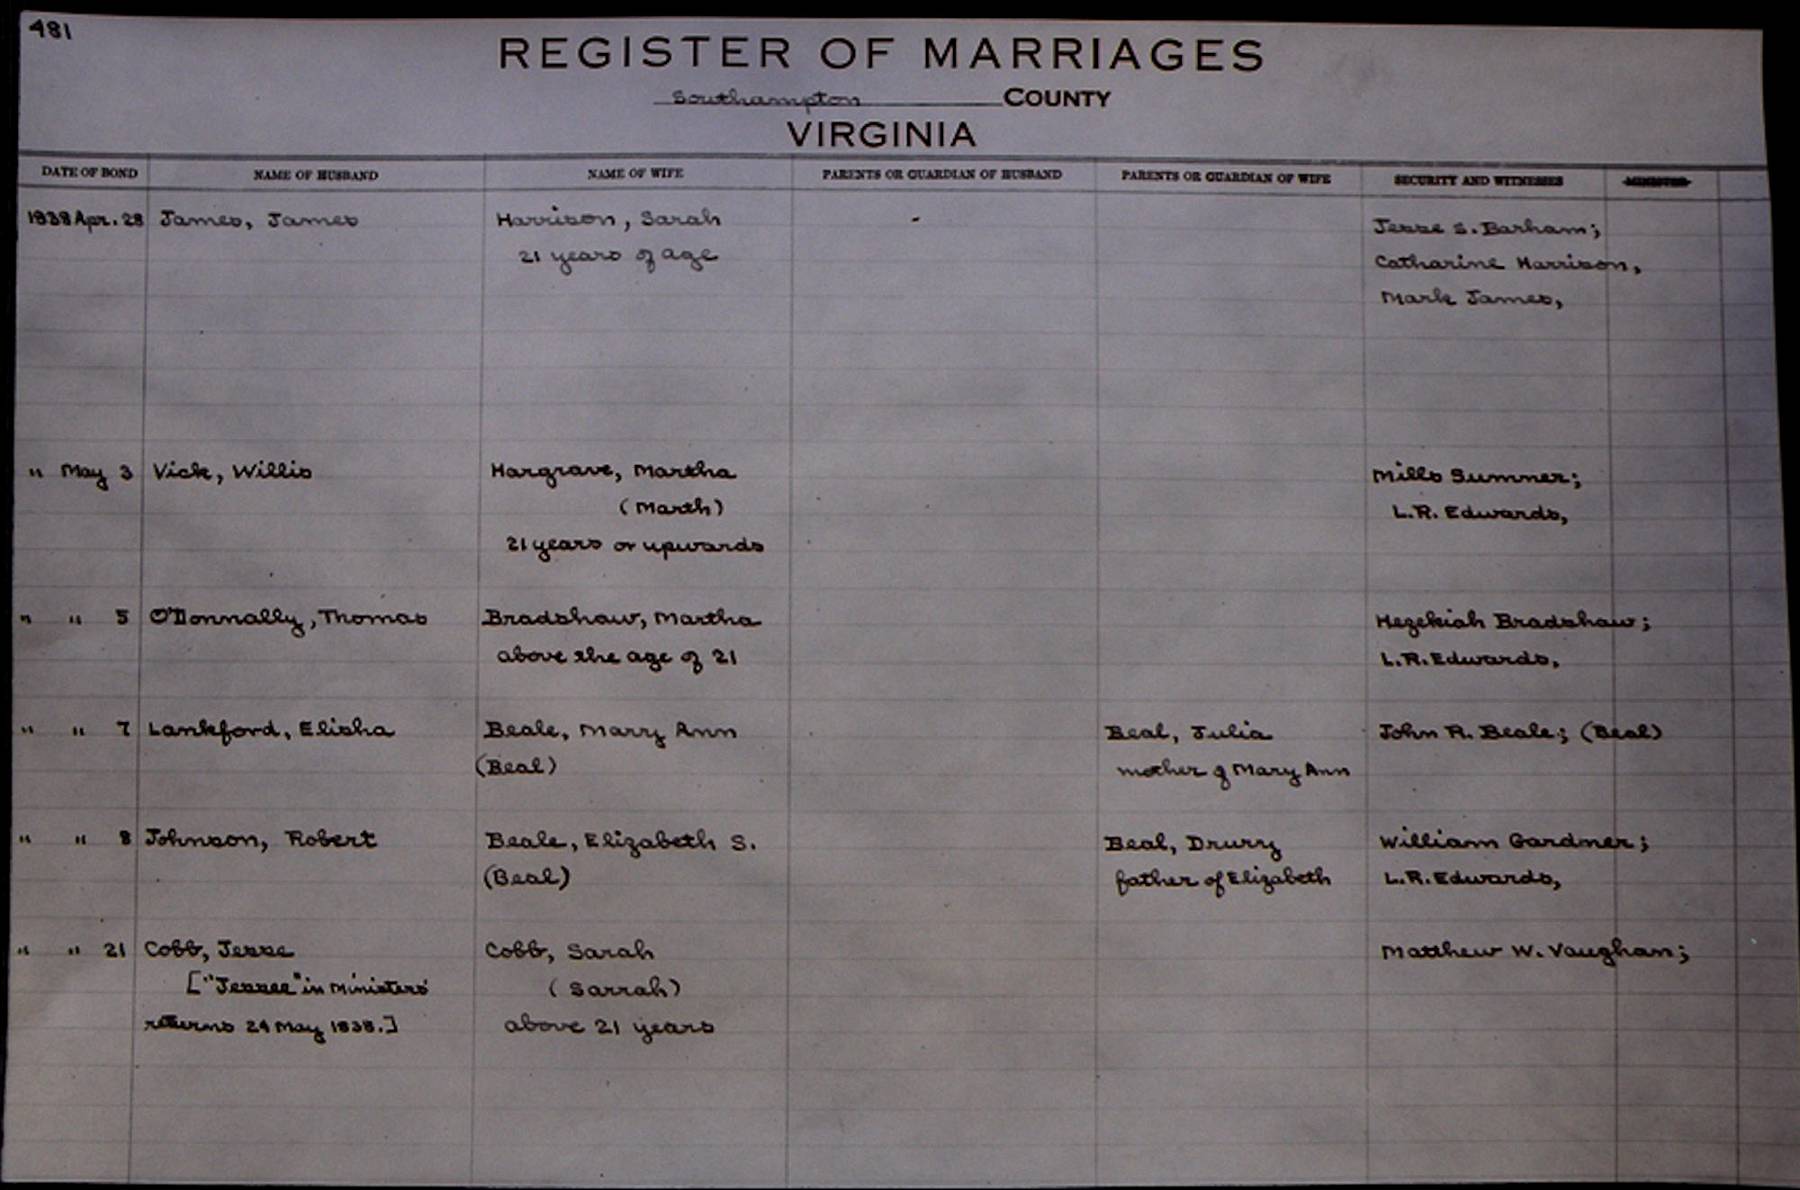 481
REGISTER OF MARRIAGES
Southampton COUNTY
VIRGINIA
DATE OF BOND NAME OF HUSBAND NAME OF WIFE PARENTS OR GUARDIAN OF HUSBAND PARENTS OR GUARDIAN OF WIFE SECURITY AND WITNESSES MINISTER
1838 Apr. 28 James, James Harrison, Sarah - Jesse S. Barham;
21 years of age Catharine Harrison,
Mark James,
" May 3 Vick, Willis Hargrave, Martha Mills Sumner;
(Marth) L.R. Edwards,
21 years or upwards
" " 5 O'Donnally, Thomas Bradshaw, Martha Hezekiah Bradshaw;
above the age of 21 L.R. Edwards,
" " 7 Lankford, Elisha Beale, Marry Ann Beal, Julia John R. Beale; (Beal)
(Beal) mother of Mary Ann
" " 8 Johnson, Robert Beale, Elizabeth S. Beal, Drurry William Gardner;
(Beal) father of Elizabeth L.R. Edwards,
" " 21 Cobb, Jesse Cobb, Sarah Matthew W. Vaughan;
["Jessee" in ministers' (Sarrah)
returns 24 May 1838.] above 21 years